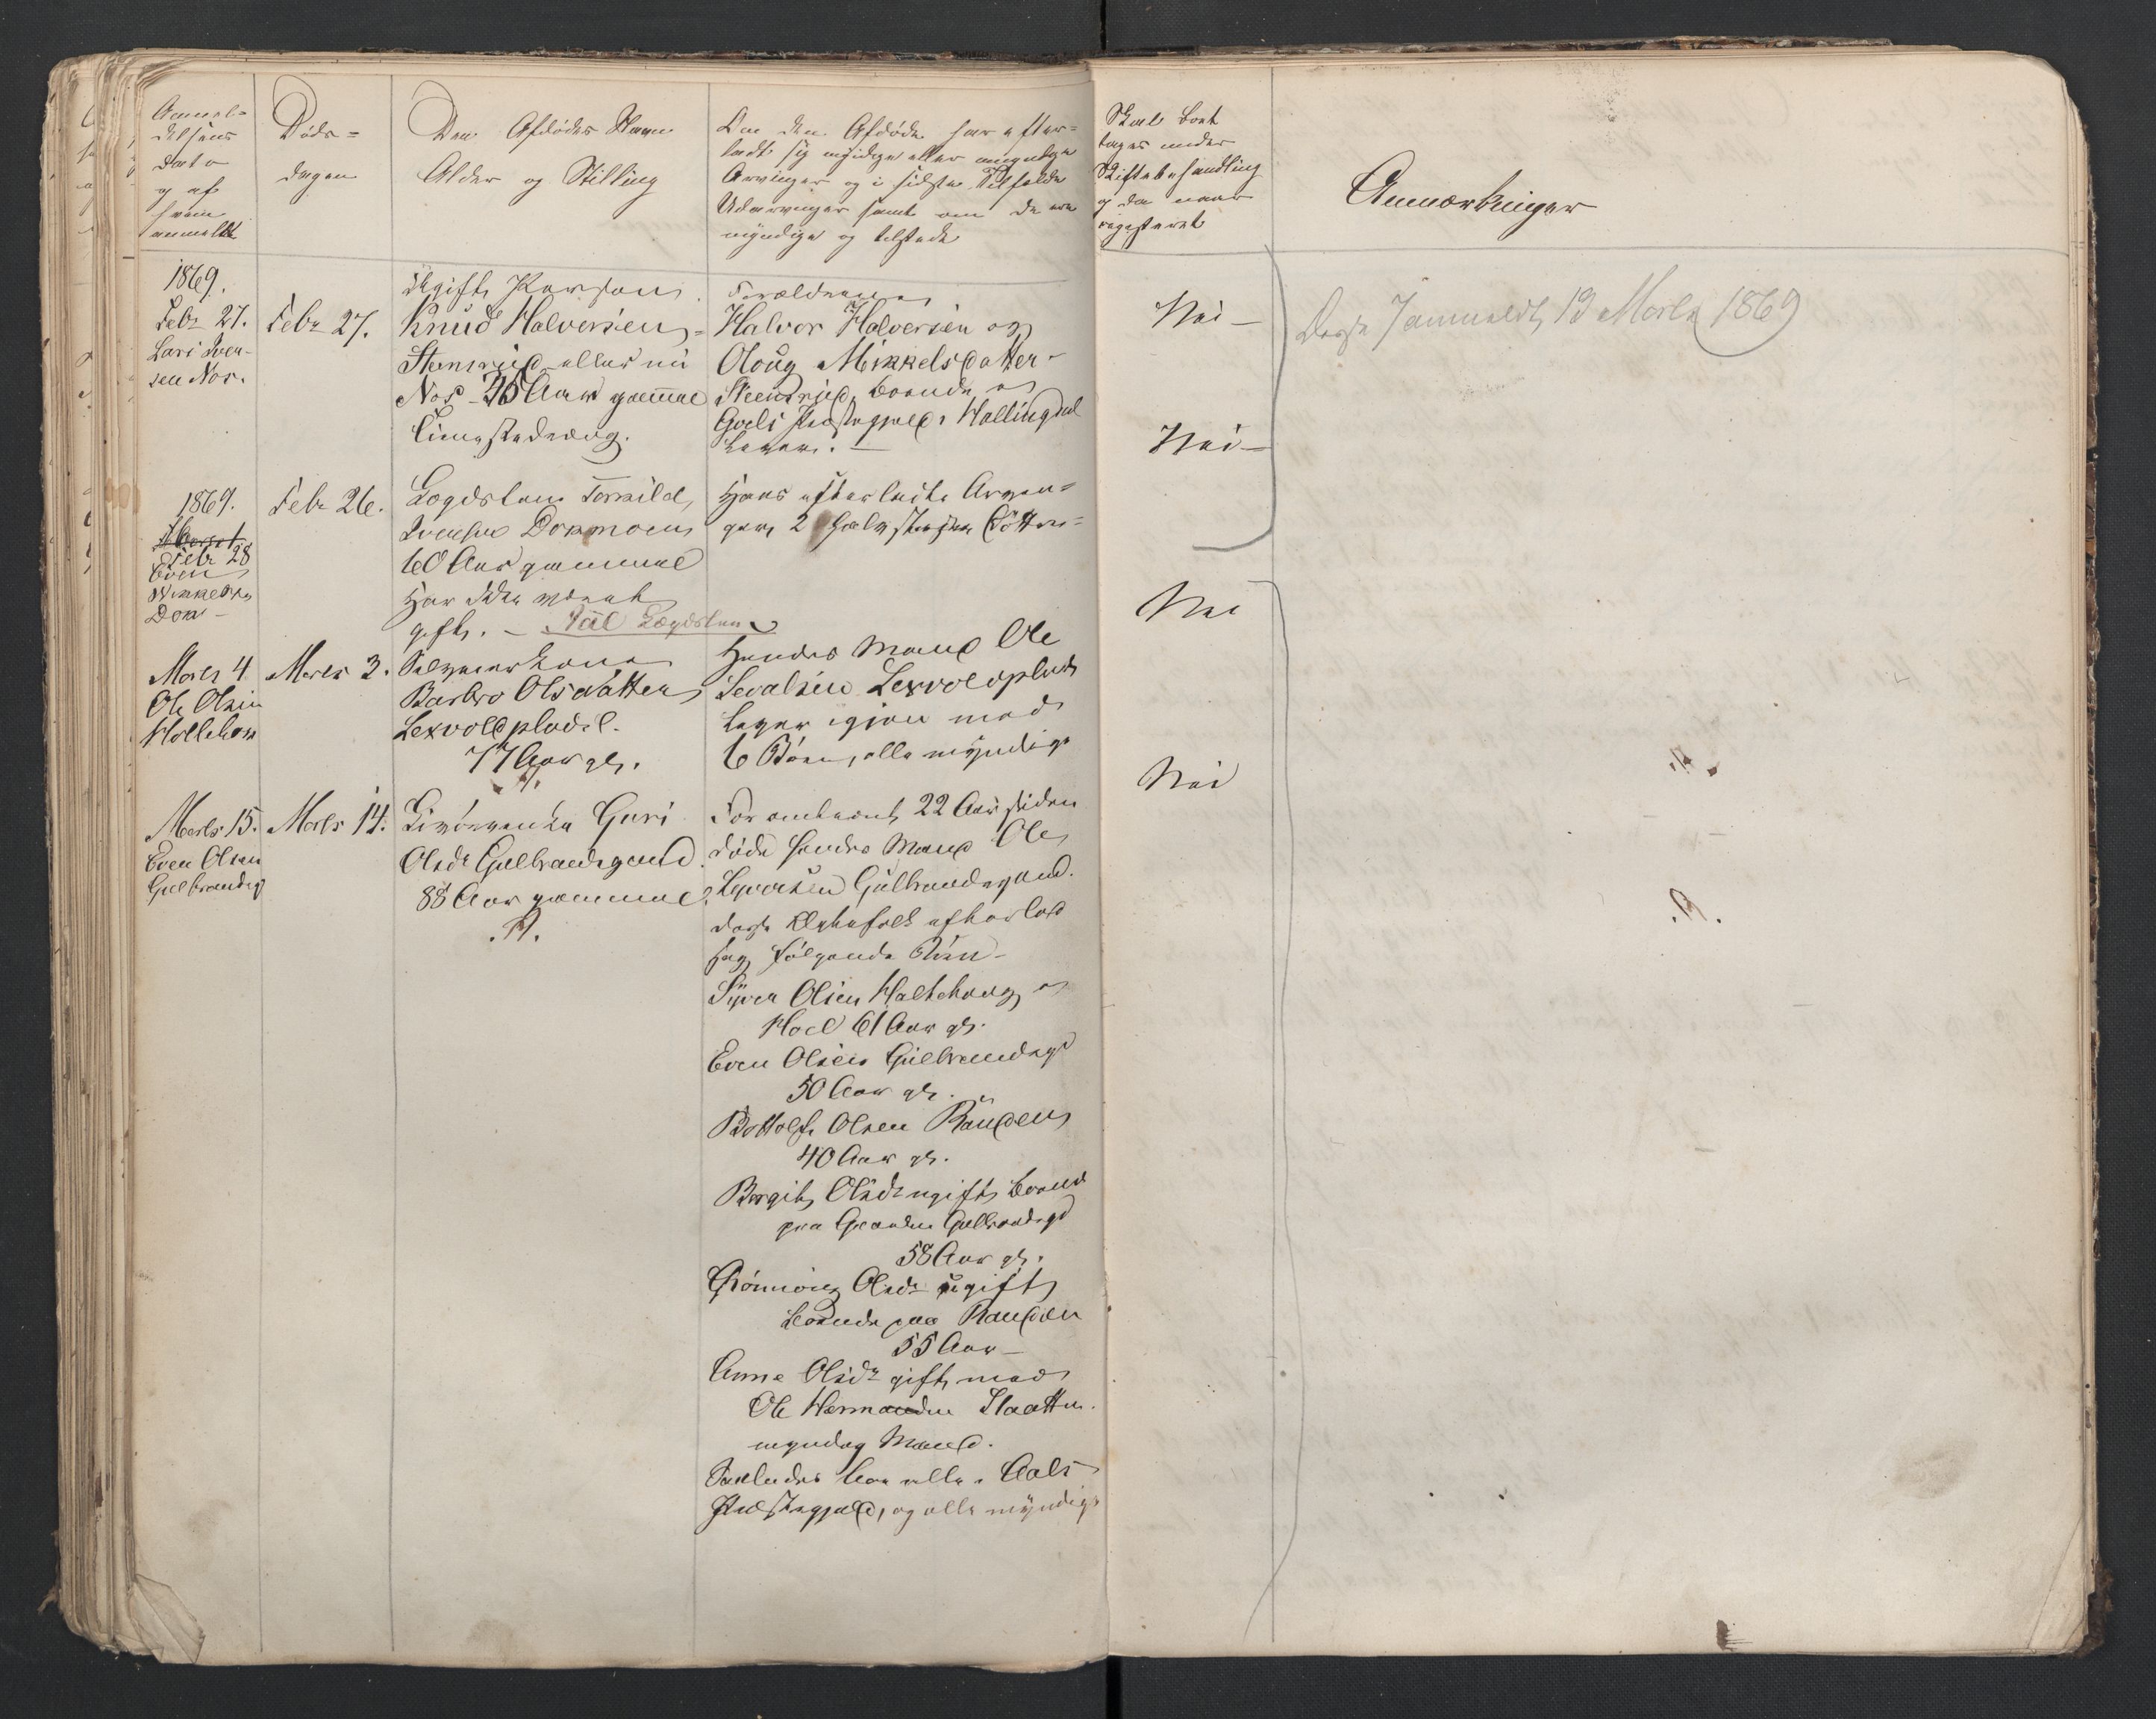 Anmel=
delsens
Dato
og af
hvem
anmeldt
Døds=
dagen
Den Afdødes Navn
Alder og Stilling
Om den Afdøde har efter=
ladt sig myndige eller umyndige
Arvinger og i sidste Tilfælde
Udarvinger samt om de ere
myndige og tilstede
Skal Boet
tages under
Skiftebehandling
og da naar
registeret
Anmærkninger
1869.
Febr 27.
Lars Iver-
sen Nos.
Febr 27.
Ugift Person
Knud Halvorsen
Stensrud eller nu
Nos 35 Aar gammel
Forældrene
Halvor Halvorsen og
Oloug Mikkelsdatter
Steensrud, boende
Gols Præstegjeld i Hallingdal
Lever. —
Nei —
Disse Jammeldt 13 Marts 1869
1869.
Febr 28
Even
Mikkelsen
Dok —
Febr 26.
Lægdslem Torkild
Iversen Dokmoen
60 Aar gammel
Har ikke været
gift. — Aal Lægdslem
Hans efterladte Arvin=
ger 2 Halvsøstre Døttre=
Nei —
Marts 4
Ole Olsen
Holtehou
Marts 3.
Selveierkone
Barbro Olsdatter
Lexvoldplads.
77 Aar gl.
Hendes Mand Ole
Levalsen Lexvoldplads
Lever igjen med
6 Børn, alle myndige
Nei
Marts 15.
Even Olsen
Gulbrandsg
Marts 14.
Livørenke Guri
Olsdr Gulbrandsgaard
88 Aar gammel.
For omtrent 22 Aar siden
døde hendes Mand Ole
Syversen Gulbrandsgaard.
disse Ægtefolk efterlod
sig følgende Børn —
Syver Olsen Holtehoug
Hoel 61 Aar gl.
Even Olsen Gulbrandsgd
50 Aar gl.
Bottolf Olsen Rauden
40 Aar gl.
Bergit Olsdr ugift boend
paa Gaarden Gulbrandsgd
58 Aar gl.
Rønnoug Olsdr ugift
boende paa Rauden
55 Aar —
Anne Olsdr gift med
Ole Hermandsen Slaatten.
myndig Mand.
Saaledes boe alle i Aals
Præstegjeld, og alle myndige
Nei